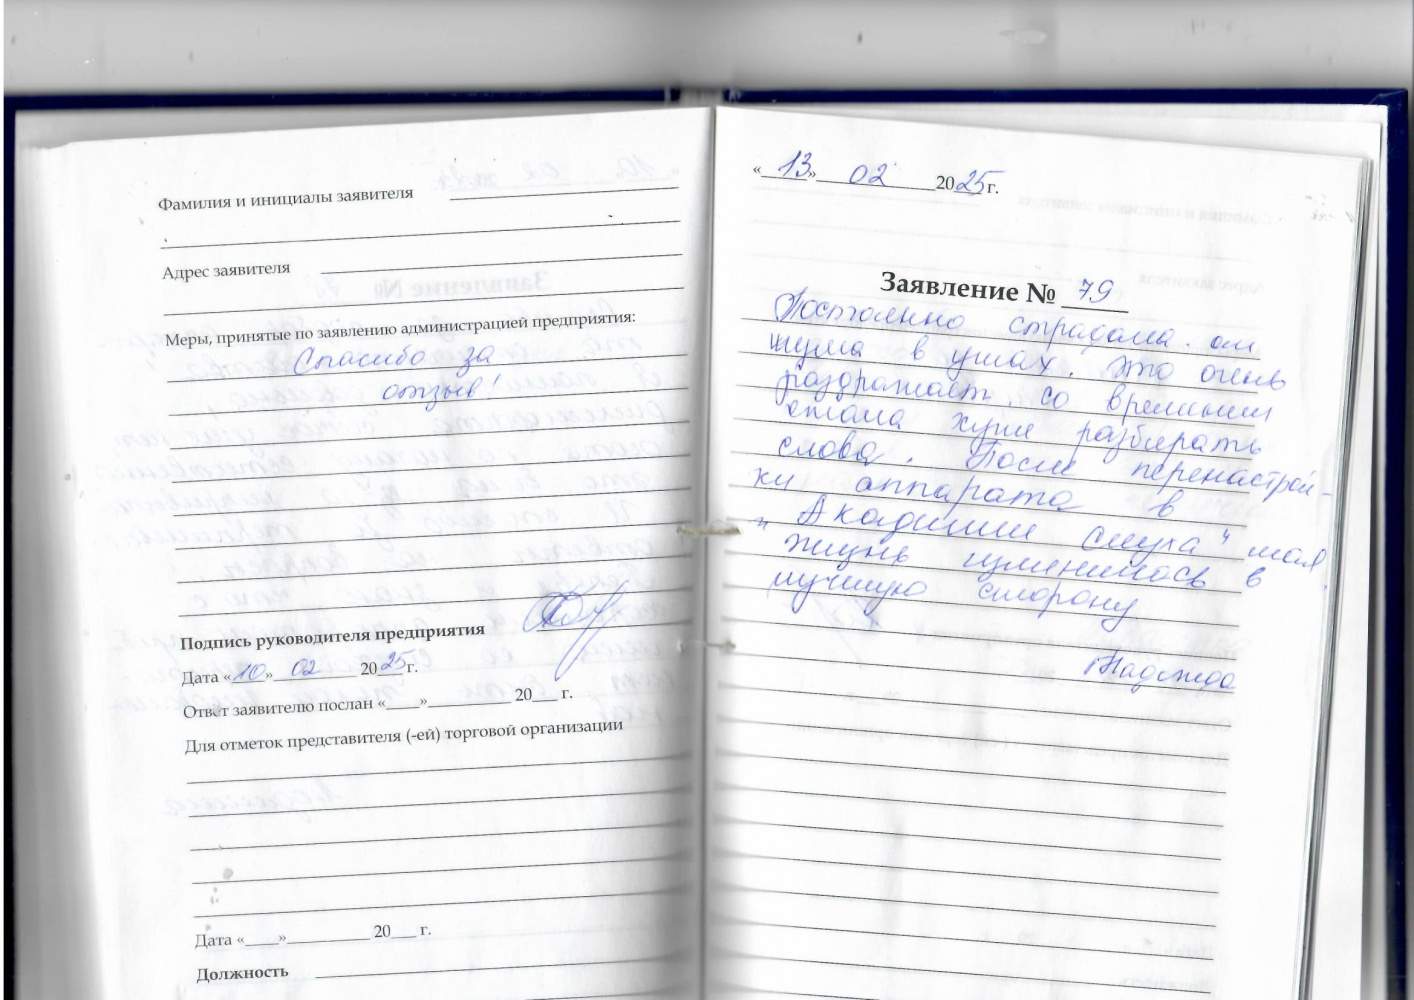 Фамилия и инициалы заявителя
Адрес заявителя
Меры, принятые по заявлению администрацией предприятия:
Спасибо за
отзыв!
Подпись руководителя предприятия
Дата «10» 02 2025 г.
Ответ заявителю послан «____»__________ 20___ г.
Для отметок представителя (-ей) торговой организации
Дата «____»__________ 20___ г.
Должность
«13» 02 2025 г.
Заявление № 79
Постоянно страдала от
шума в ушах. Это очень
раздражает, со временем
стала хуже разбирать
слова. После перенастрой-
ки аппарата в
"Академии слуха" моя
жизнь изменилась в
лучшую сторону.
Надежда